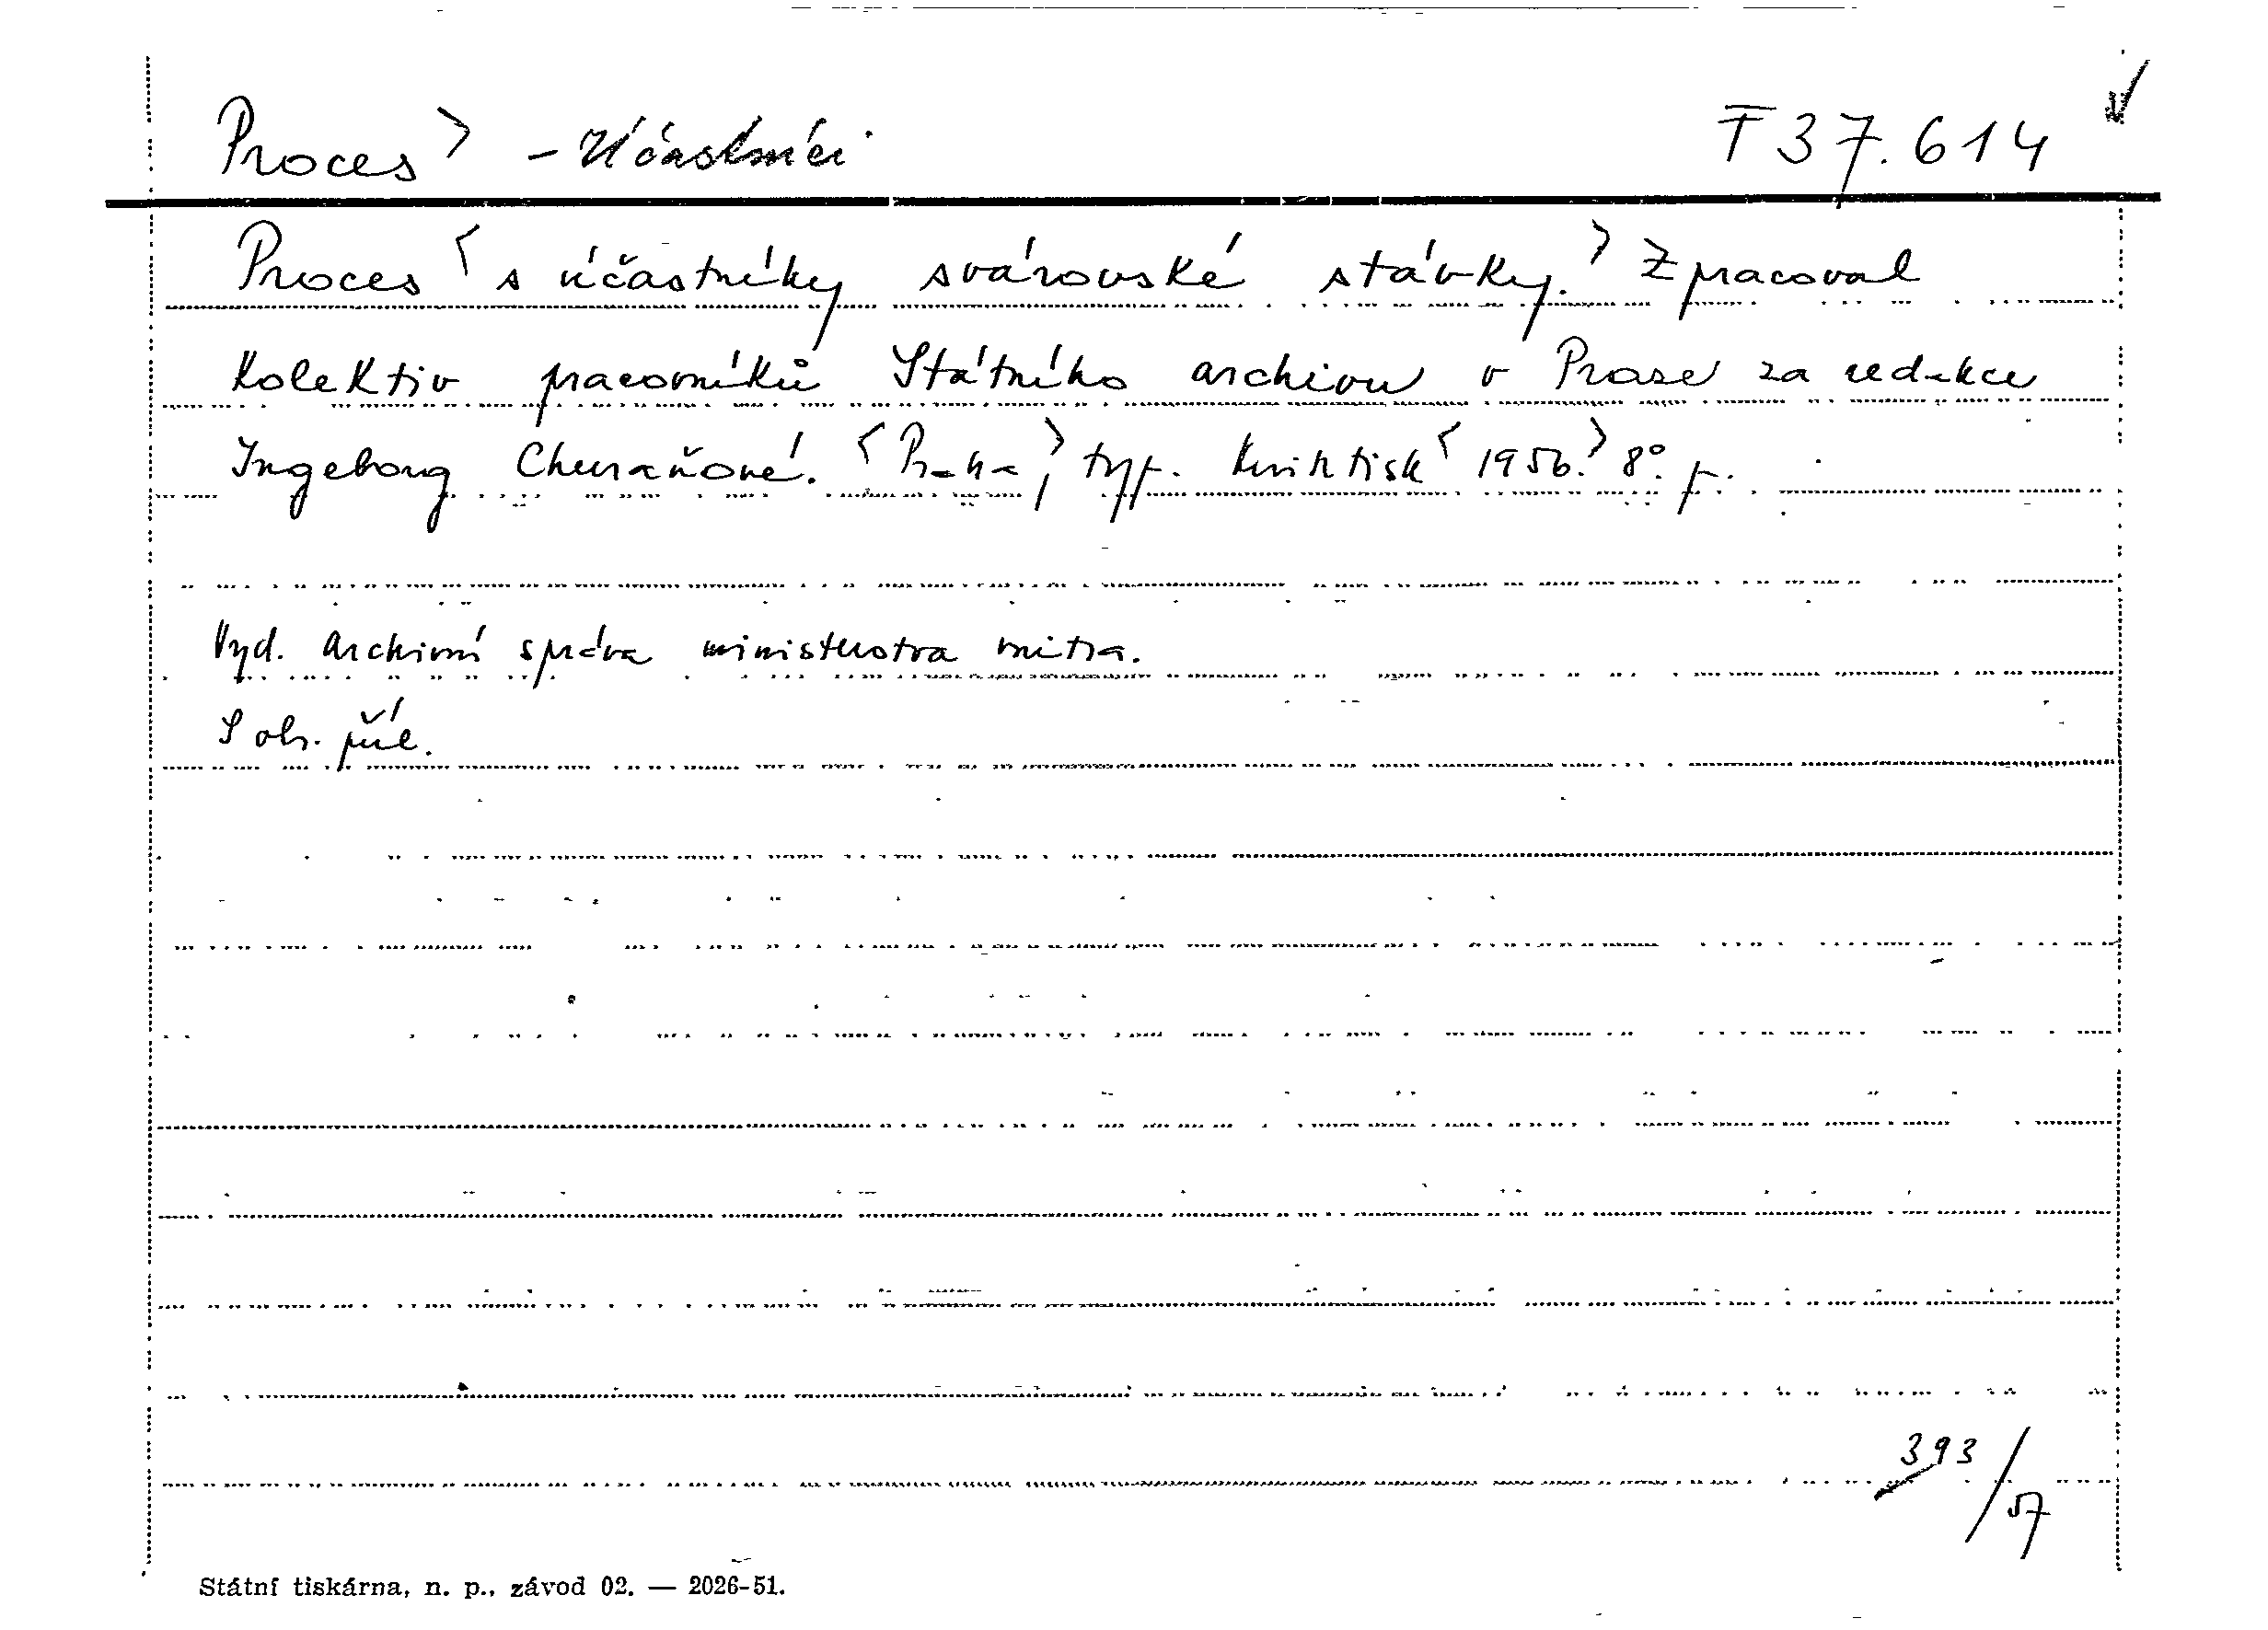 Proces > - Účastníci T 37.614
Proces < s účastníky svárovské stávky. > Zpracoval
Kolektiv pracovníků Státního archivu v Praze za redakce
Ingeborg Churaňové. < Praha, > typ. Knihtisk < 1956. > 8°. p.
Vyd. Archivní správa ministerstva vnitra.
S obr. příl.
393/57
Státní tiskárna, n. p., závod 02. — 2026-51.